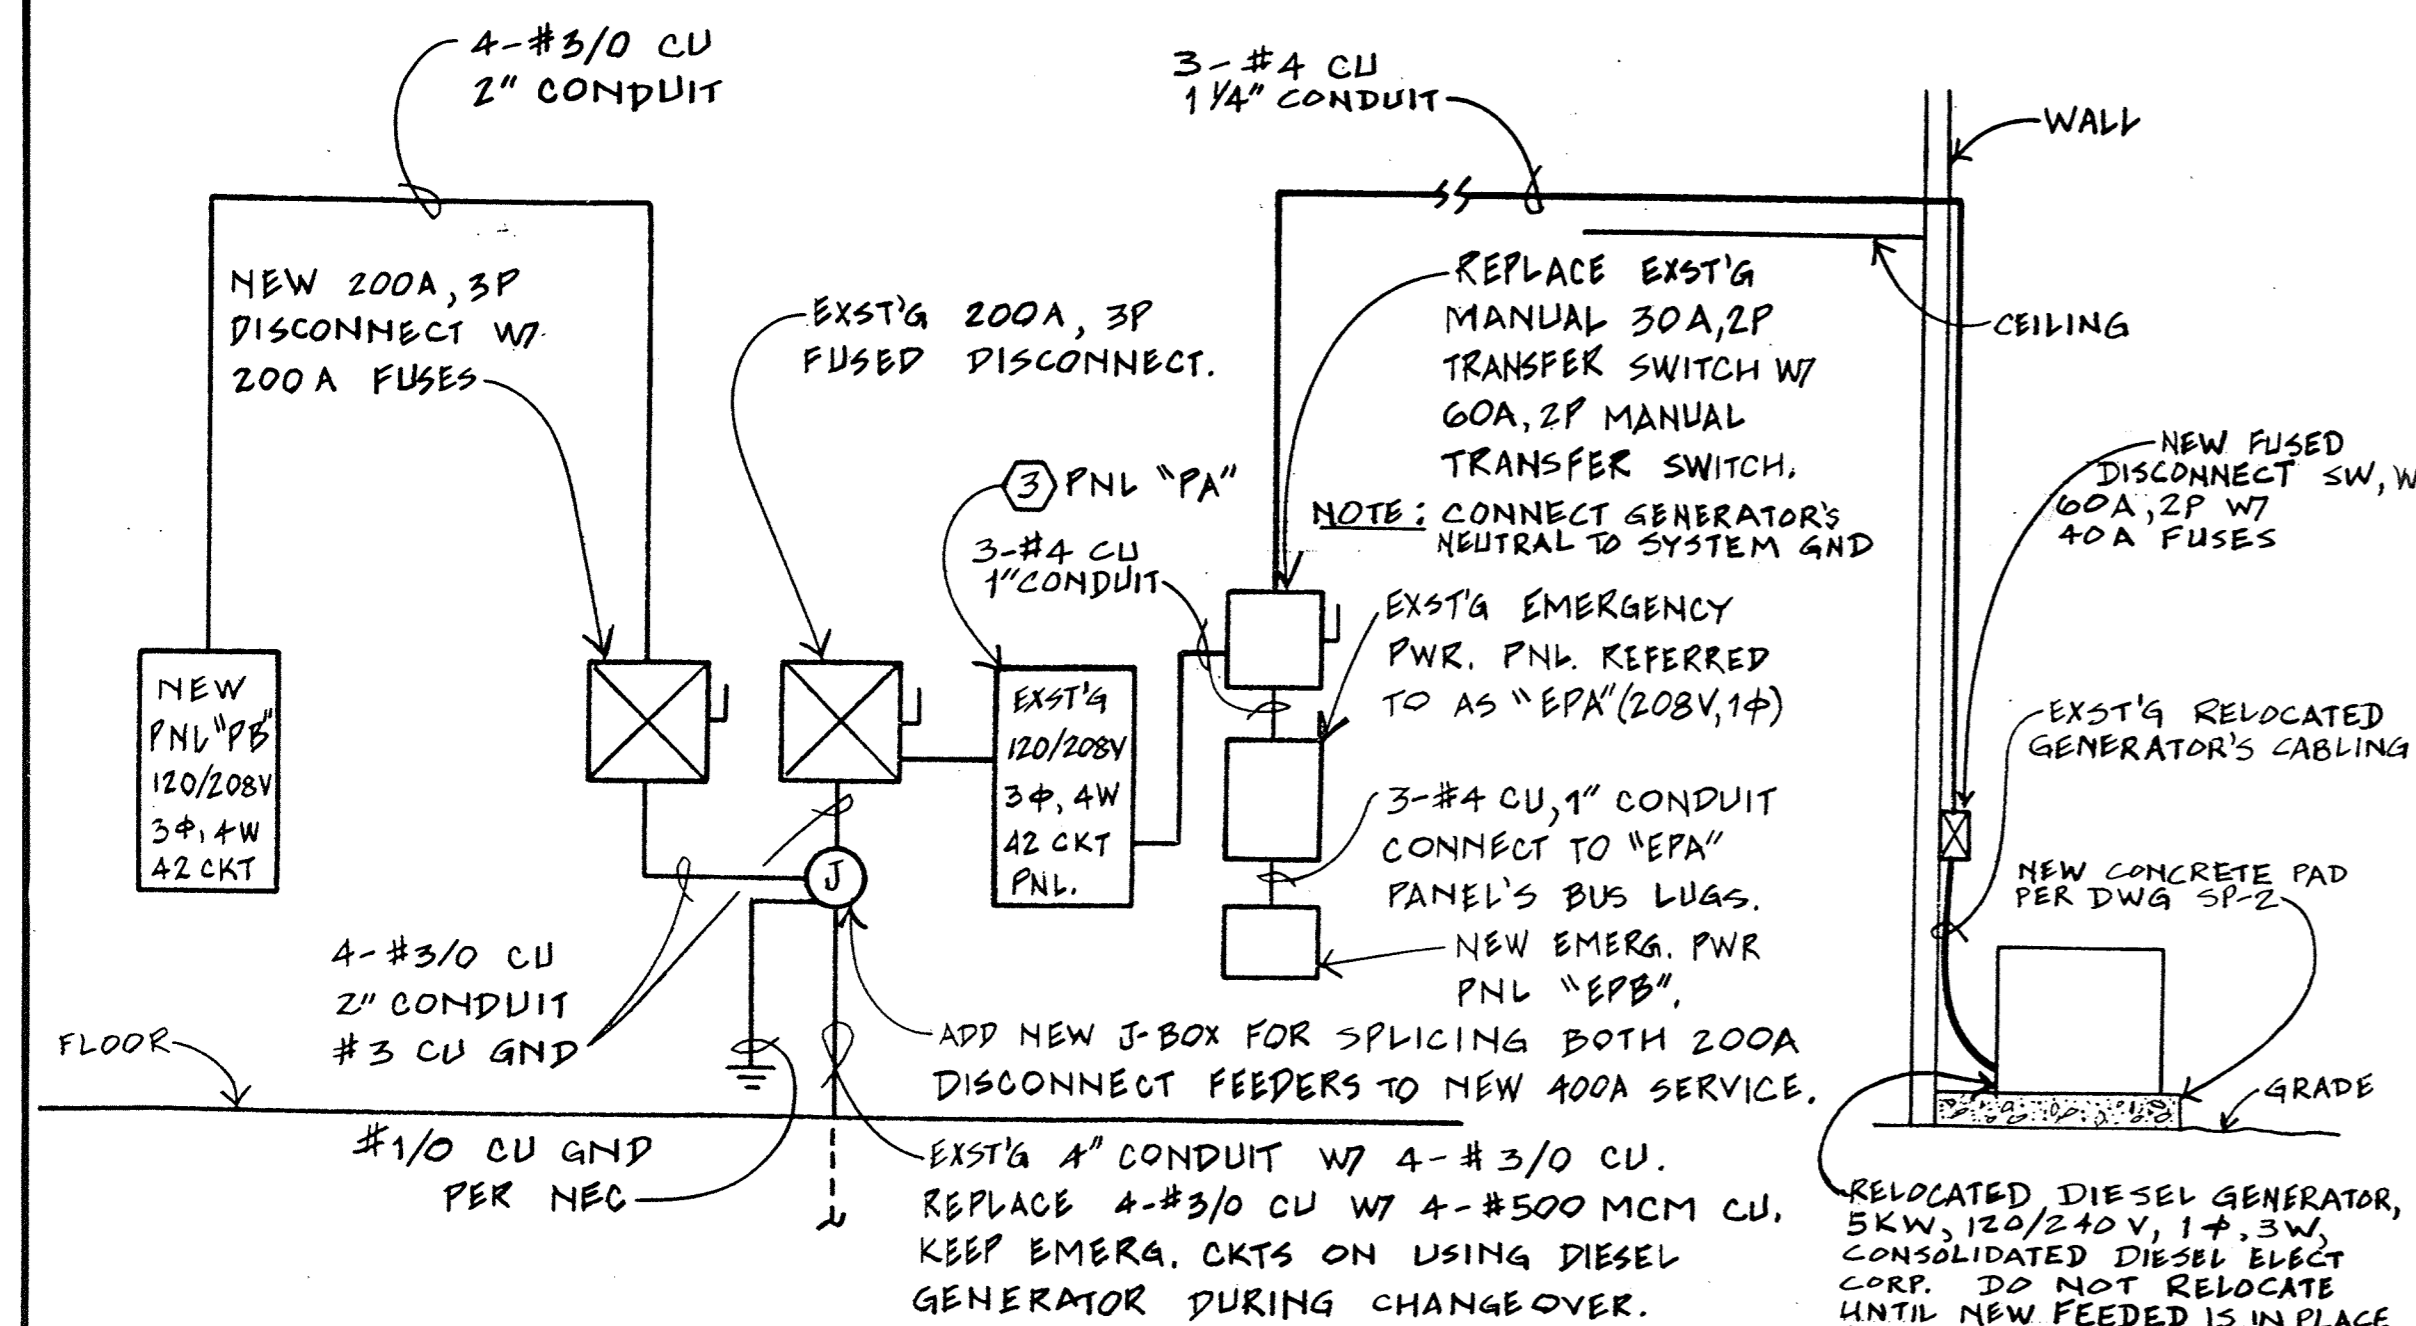 4-#3/0 CU
2" CONDUIT
3-#4 CU
1 1/4" CONDUIT
WALL
NEW 200A, 3P
DISCONNECT W/
200A FUSES
EXST'G 200A, 3P
FUSED DISCONNECT.
REPLACE EXST'G
MANUAL 30A, 2P
TRANSFER SWITCH W/
60A, 2P MANUAL
TRANSFER SWITCH.
NOTE: CONNECT GENERATOR'S
NEUTRAL TO SYSTEM GND
CEILING
NEW FUSED
DISCONNECT SW, W
60A, 2P W/
40A FUSES
3 PNL "PA"
3-#4 CU
1" CONDUIT
EXST'G EMERGENCY
PWR. PNL. REFERRED
TO AS "EPA" (208V, 1Φ)
NEW
PNL "PB"
120/208V
3Φ, 4W
42 CKT
EXST'G
120/208V
3Φ, 4W
42 CKT
PNL.
EXST'G RELOCATED
GENERATOR'S CABLING
3-#4 CU, 1" CONDUIT
CONNECT TO "EPA"
PANEL'S BUS LUGS.
J
NEW CONCRETE PAD
PER DWG SP-2
NEW EMERG. PWR
PNL "EPB".
4-#3/0 CU
2" CONDUIT
#3 CU GND
FLOOR
ADD NEW J-BOX FOR SPLICING BOTH 200A
DISCONNECT FEEDERS TO NEW 400A SERVICE.
GRADE
#1/0 CU GND
PER NEC
EXST'G 4" CONDUIT W/ 4-#3/0 CU.
REPLACE 4-#3/0 CU W/ 4-#500 MCM CU.
KEEP EMERG. CKTS ON USING DIESEL
GENERATOR DURING CHANGEOVER.
RELOCATED DIESEL GENERATOR,
5KW, 120/240V, 1Φ, 3W,
CONSOLIDATED DIESEL ELECT
CORP. DO NOT RELOCATE
UNTIL NEW FEEDED IS IN PLACE